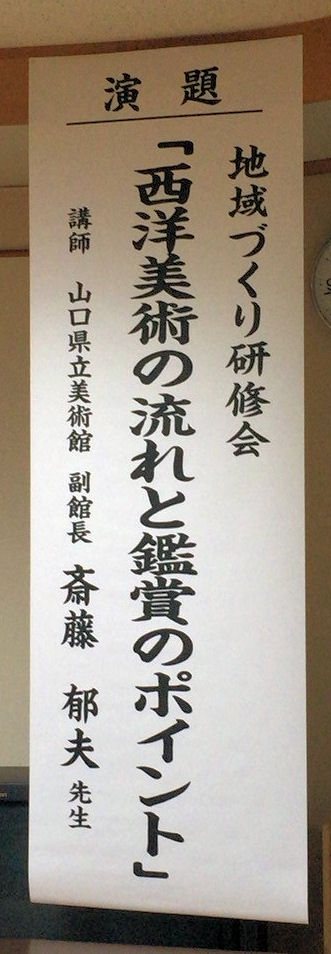 演題
地域づくり研修会
「西洋美術の流れと鑑賞のポイント」
講師 山口県立美術館 副館長 斎藤 郁夫 先生